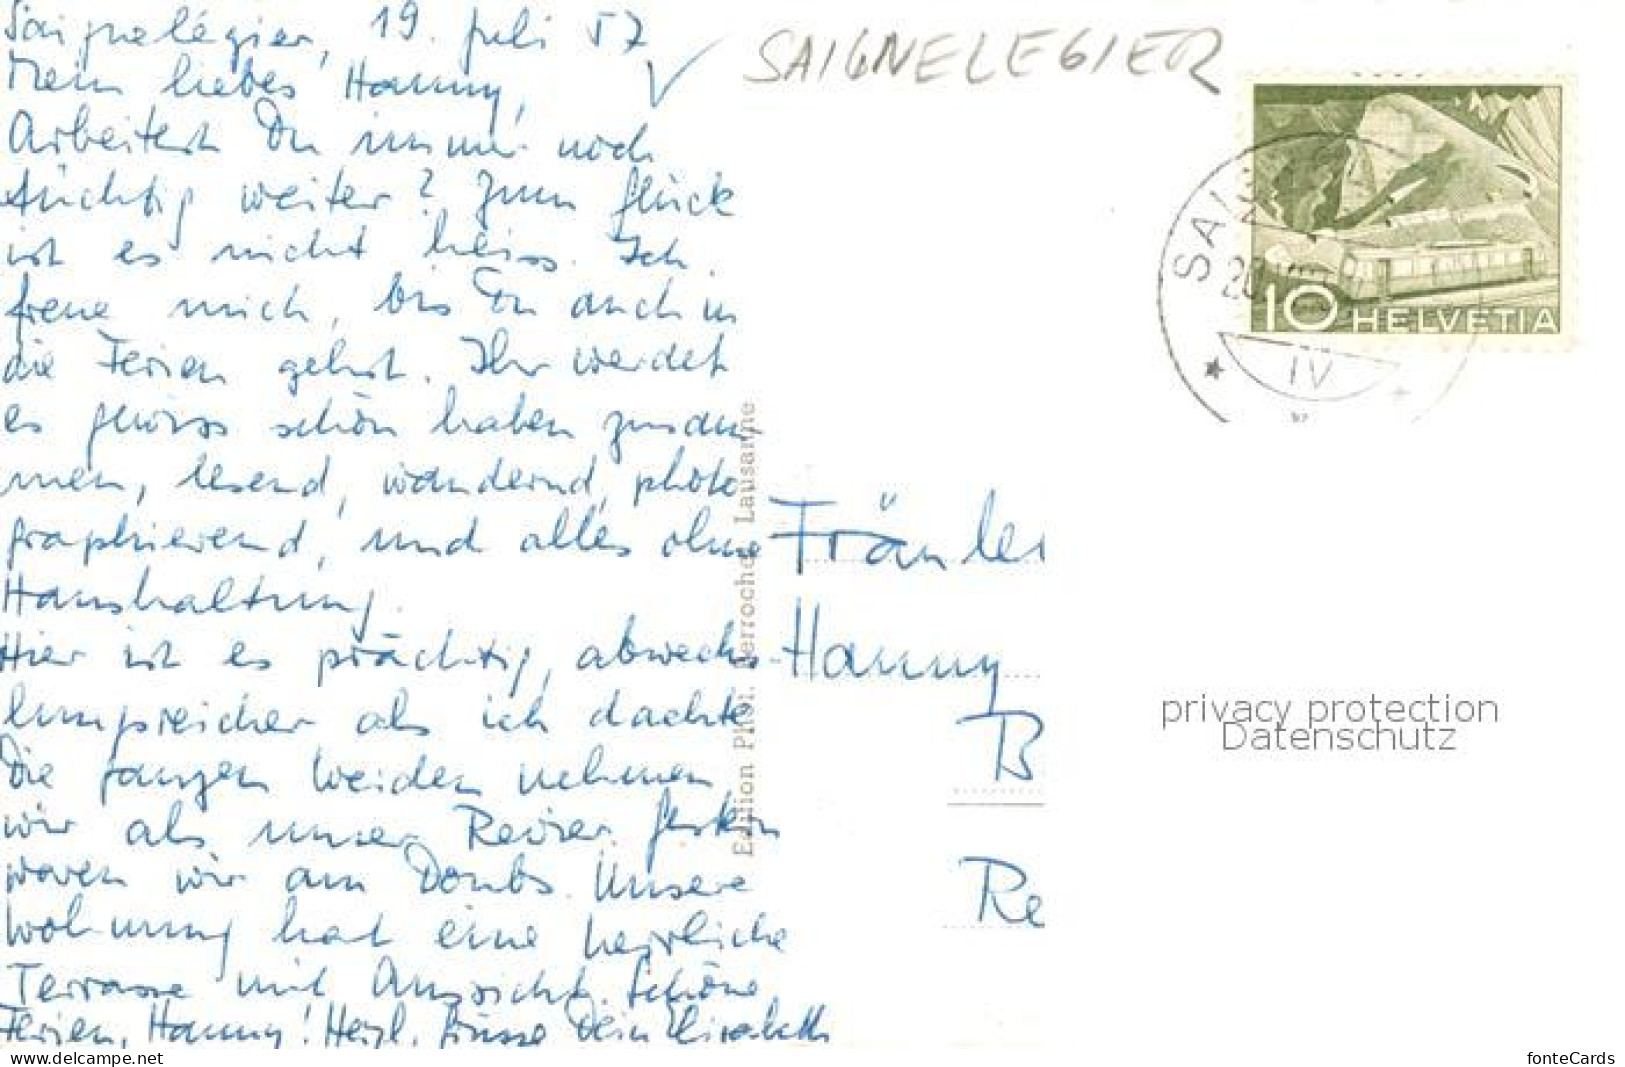 Saignelégier, 19. Juli 57
Mein liebes Hanny,
Arbeitest Du immer noch
tüchtig weiter? Zum Glück
ist es nicht heiss. Ich
freue mich, bis Du auch in
die Ferien gehst. Ihr werdet
es gewiss schön haben zusam
men, lesend, wandernd, photo
graphierend, und alles ohne
Haushaltung.
Hier ist es prächtig, abwechs-
lungsreicher als ich dachte
Die ganzen Weiden nehmen
wir als unser Revier. Gestern
waren wir am Doubs. Unsere
Wohnung hat eine herrliche
Terrasse mit Aussicht. Schöne
Ferien, Hanny! Herzl. Grüsse Dein Elisabeth
SAIGNELEGIER
10 HELVETIA
SAIG
IV
Edition Phot. Perrochet Lausanne
Fräulei
Hanny
B
Re
privacy protection
Datenschutz
www.delcampe.net
fonteCards